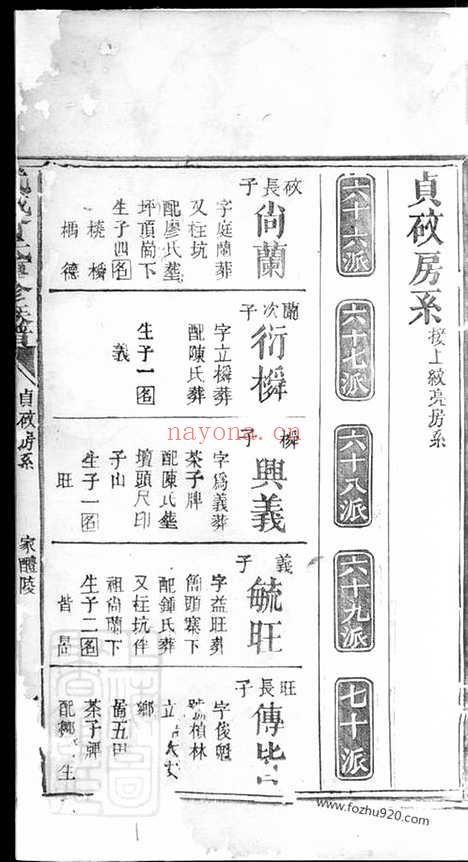 貞砇房系
接上紋亮房系
六十六派
六十七派
六十八派
六十九派
七十派
砇長子
尚蘭
字庭蘭葬
又柱坑
配廖氏塟
坪頂崗下
生子四名
橈橓
楀德
蘭次子
衍橓
字立橓葬
配陳氏葬
生子一名
義
橓子
興義
字為義葬
茶子牌
配陳氏塟
壇頭尺印
子山
生子一名
旺
義子
毓旺
字益旺葬
簡頭寨下
配鍾氏葬
又柱坑件
祖尚蘭下
生子二名
皆昺
旺長子
傳皆
字俊魁
柏林
立
鄉
五田
茶子牌
生
貞砇房系
家醴陵
nayona.cn
www.fozhu920.com